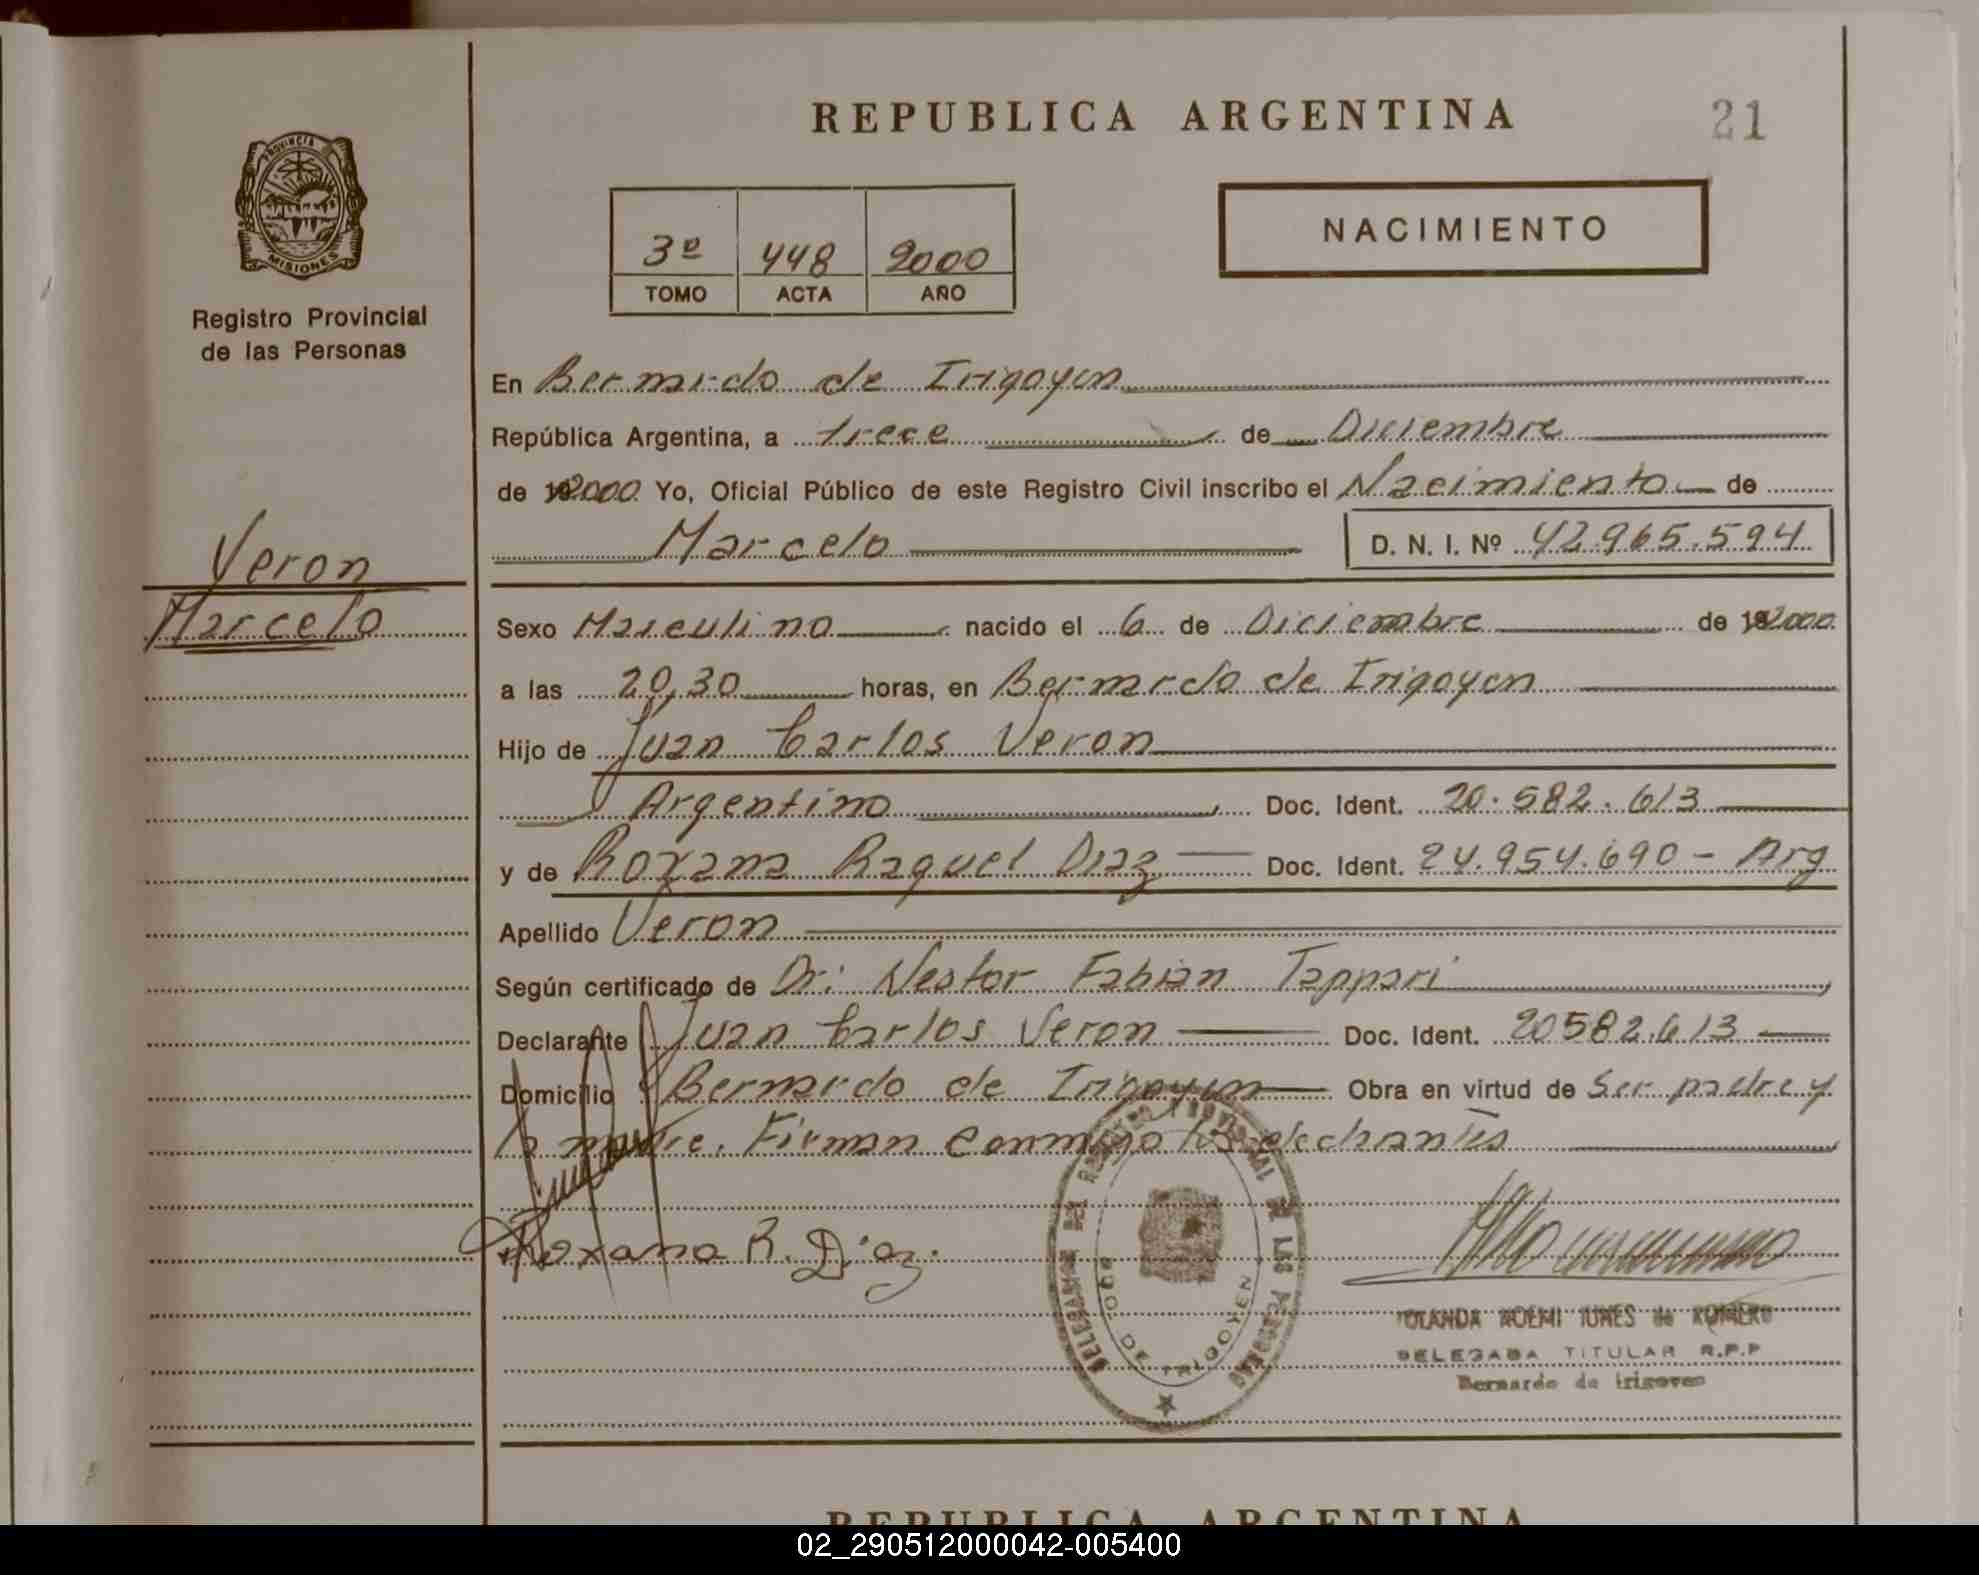 REPUBLICA ARGENTINA
21
PROVINCIA
MISIONES
Registro Provincial
de las Personas
3º 448 2000
TOMO ACTA AÑO
NACIMIENTO
En Bernardo de Irigoyen
República Argentina, a trece de Diciembre
de 2000 Yo, Oficial Público de este Registro Civil inscribo el Nacimiento de
Marcelo D. N. I. Nº 42.965.594
Veron
Marcelo
Sexo Masculino nacido el 6 de Diciembre de 2000
a las 20,30 horas, en Bernardo de Irigoyen
Hijo de Juan Carlos Veron
Argentino Doc. Ident. 20.582.613
y de Roxana Raquel Diaz Doc. Ident. 24.954.690 - Arg
Apellido Veron
Según certificado de Dr: Nestor Fabian Tappari
Declarante Juan Carlos Veron Doc. Ident. 20582.613
Domicilio Bernardo de Irigoyen Obra en virtud de Ser padre y
la madre. Firman conmigo los
Roxana R. Diaz.
DE IRIGOYEN
YOLANDA NOEMI de ROMERO
DELEGADA TITULAR R.P.P
Bernardo de Irigoyen
REPUBLICA ARGENTINA
02_290512000042-005400